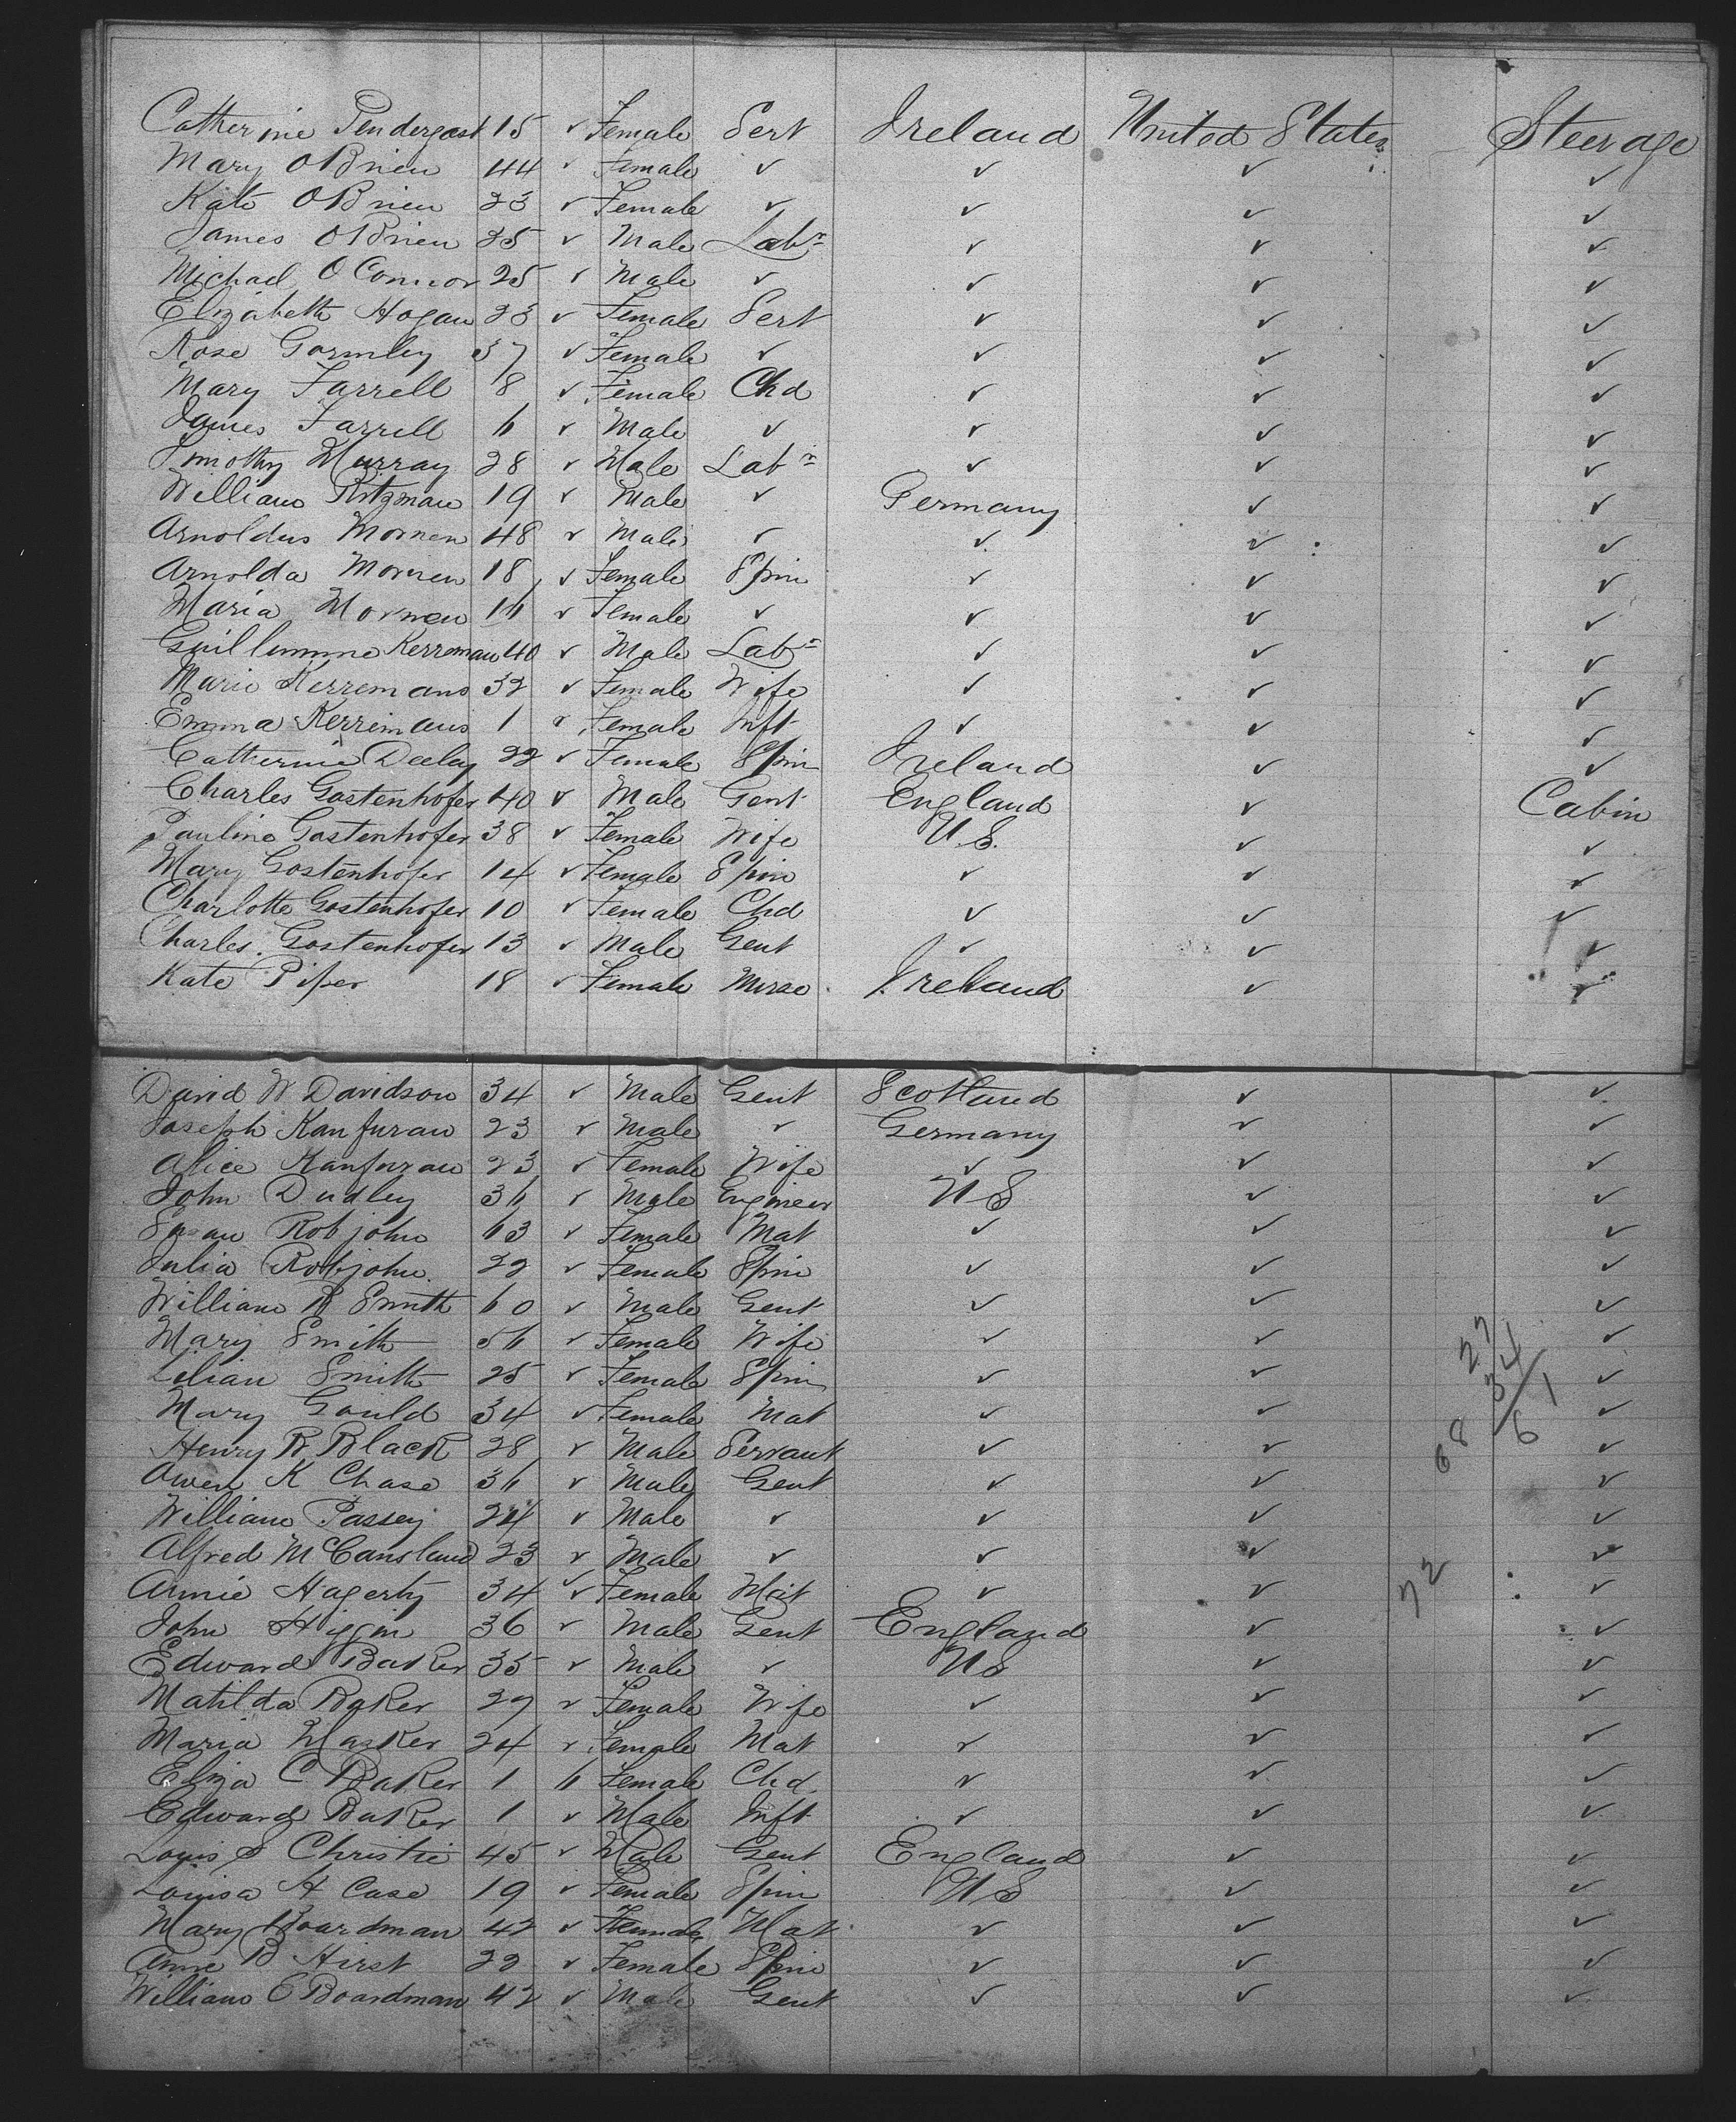 Catherine Pendergast 15 ✓ Female Sert Ireland United States Steerage
Mary OBrien 44 ✓ Female ✓ ✓ ✓ ✓
Kate OBrien 23 ✓ Female ✓ ✓ ✓ ✓
James OBrien 25 ✓ Male Labr ✓ ✓ ✓
Michael OConnor 25 ✓ Male ✓ ✓ ✓ ✓
Elizabeth Hogan 23 ✓ Female Sert ✓ ✓ ✓
Rose Gormley 37 ✓ Female ✓ ✓ ✓ ✓
Mary Farrell 8 ✓ Female Chd ✓ ✓ ✓
James Farrell 6 ✓ Male ✓ ✓ ✓ ✓
Timothy Murray 28 ✓ Male Labr ✓ ✓ ✓
William Ritzman 19 ✓ Male ✓ Germany ✓ ✓
Arnoldus Mornen 48 ✓ Male ✓ ✓ ✓ ✓
Arnolda Mornen 18 ✓ Female Spin ✓ ✓ ✓
Maria Mornen 16 ✓ Female ✓ ✓ ✓ ✓
Guillemme Kerreman 40 ✓ Male Labr ✓ ✓ ✓
Marie Kerremans 32 ✓ Female Wife ✓ ✓ ✓
Emma Kerremans 1 ✓ Female Inft ✓ ✓ ✓
Catherine Deeley 22 ✓ Female Spin Ireland ✓ ✓
Charles Gostenhofer 40 ✓ Male Gent England ✓ Cabin
Pauline Gostenhofer 38 ✓ Female Wife U.S. ✓ ✓
Mary Gostenhofer 14 ✓ Female Spin ✓ ✓ ✓
Charlotte Gostenhofer 10 ✓ Female Chd ✓ ✓ ✓
Charles Gostenhofer 13 ✓ Male Gent ✓ ✓ ✓
Kate Piper 18 ✓ Female Nurse Ireland ✓ ✓
David W Davidson 34 ✓ Male Gent Scotland ✓ ✓
Joseph Kanfuran 23 ✓ Male ✓ Germany ✓ ✓
Alice Kanfuran 23 ✓ Female Wife ✓ ✓ ✓
John Dudley 36 ✓ Male Engineer U S ✓ ✓
Susan Robjohn 63 ✓ Female Mat ✓ ✓ ✓
Julia Robjohn 22 ✓ Female Spin ✓ ✓ ✓
William R Smith 60 ✓ Male Gent ✓ ✓ ✓
Mary Smith 56 ✓ Female Wife ✓ ✓ 27 ✓
Lilian Smith 25 ✓ Female Spin ✓ ✓ 34 ✓
Mary Gould 34 ✓ Female Mat ✓ ✓ 61 ✓
Henry R Black 28 ✓ Male Servant ✓ ✓ 68 ✓
Owen K Chase 36 ✓ Male Gent ✓ ✓ ✓
William Passey 24 ✓ Male ✓ ✓ ✓ ✓
Alfred McCansland 23 ✓ Male ✓ ✓ ✓ ✓
Annie Hagerty 34 ✓ Female Mat ✓ ✓ 72 ✓
John Higgin 36 ✓ Male Gent England ✓ ✓
Edward Baker 35 ✓ Male ✓ U S ✓ ✓
Matilda Baker 27 ✓ Female Wife ✓ ✓ ✓
Maria Masker 24 ✓ Female Mat ✓ ✓ ✓
Eliza C Baker 1 6 Female Chd ✓ ✓ ✓
Edward Baker 1 ✓ Male Inft ✓ ✓ ✓
Louis S Christie 45 ✓ Male Gent England ✓ ✓
Louisa H Case 19 ✓ Female Spin U S ✓ ✓
Mary Boardman 42 ✓ Female Mat ✓ ✓ ✓
Anne B Hirst 22 ✓ Female Spin ✓ ✓ ✓
William E Boardman 42 ✓ Male Gent ✓ ✓ ✓